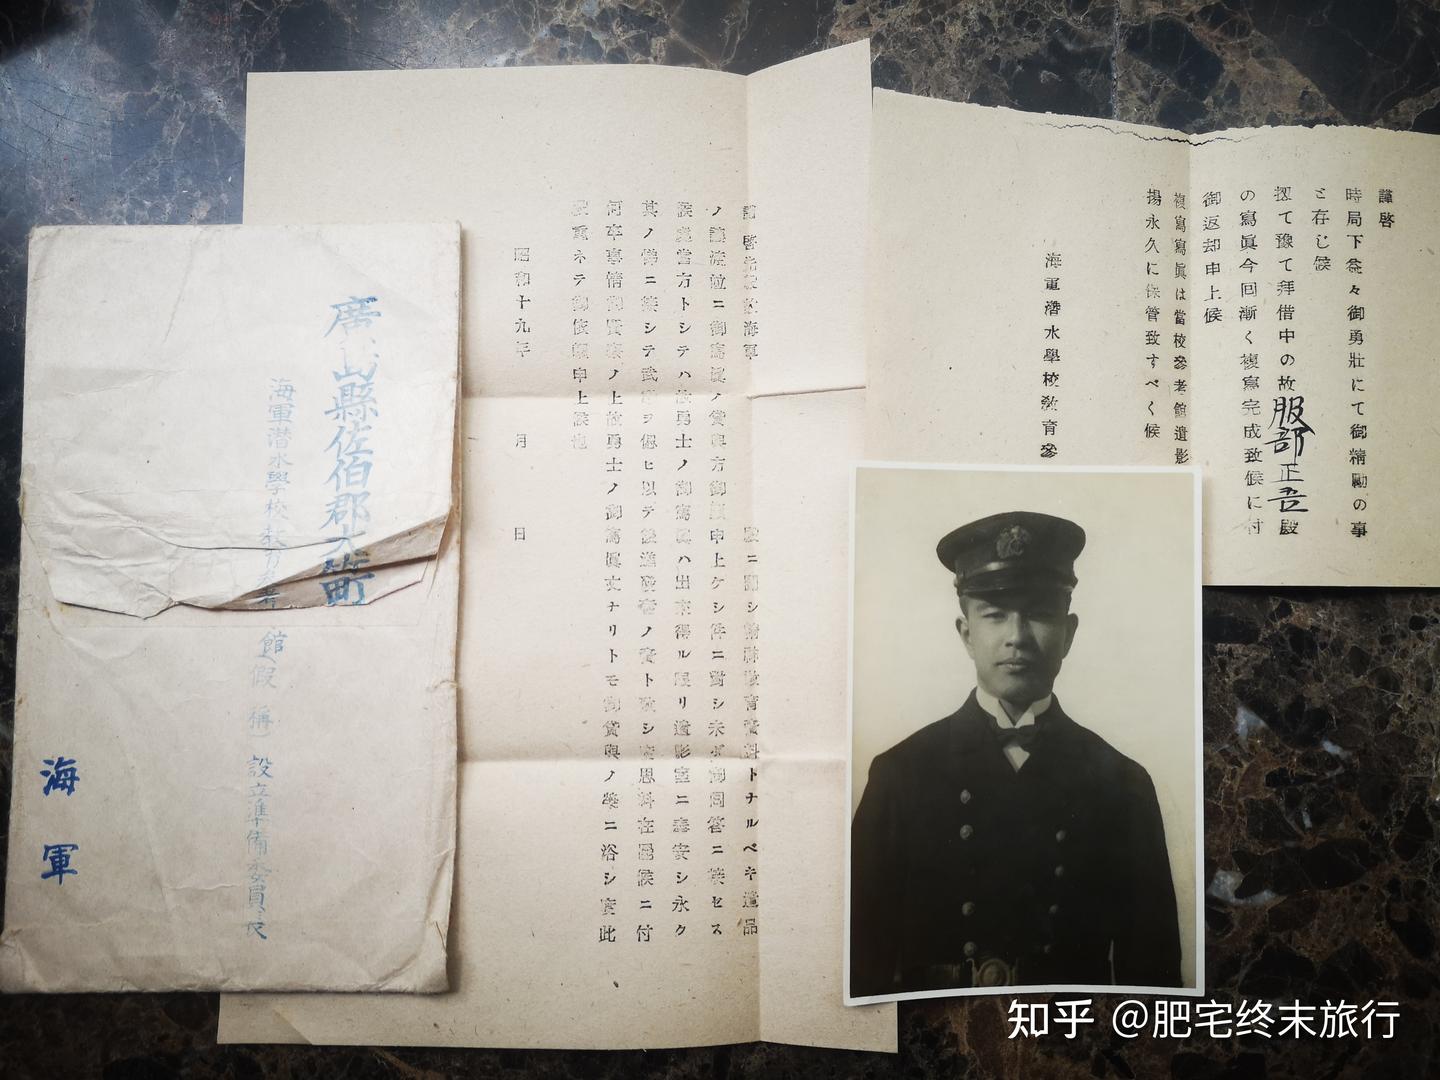 謹啓
時局下益々御勇壯にて御精勵の事
と存じ候
扨て豫て拜借中の故服部正吾殿
の寫眞今回漸く複寫完成致候に付
御返却申上候
複寫寫眞は當校參考館遺影
揚永久に保管致すべく候
海軍潜水學校敎育參
海軍
ニ關シ
敎育資料トナルベキ遺品
ノ
竝ニ御寫眞ノ貸與方御
申上ケシ件ニ對シ未ダ御回答ニ接セス
候處當方トシテハ故勇士ノ御寫眞ハ出來得ル限リ遺影室ニ奉安シ永ク
其ノ
ニ接シテ武
ヲ偲ヒ以テ後進
ノ資ト致シ度思料在罷候ニ付
何卒事情御賢察ノ上故勇士ノ御寫眞丈ナリトモ御貸與ノ榮ニ浴シ度此
段重ネテ御依賴申上候也
昭和十九年 月 日
縣佐伯郡大竹町
海軍潜水學校教育參考館(假稱)設立準備委員長
海軍
知乎 @肥宅终末旅行